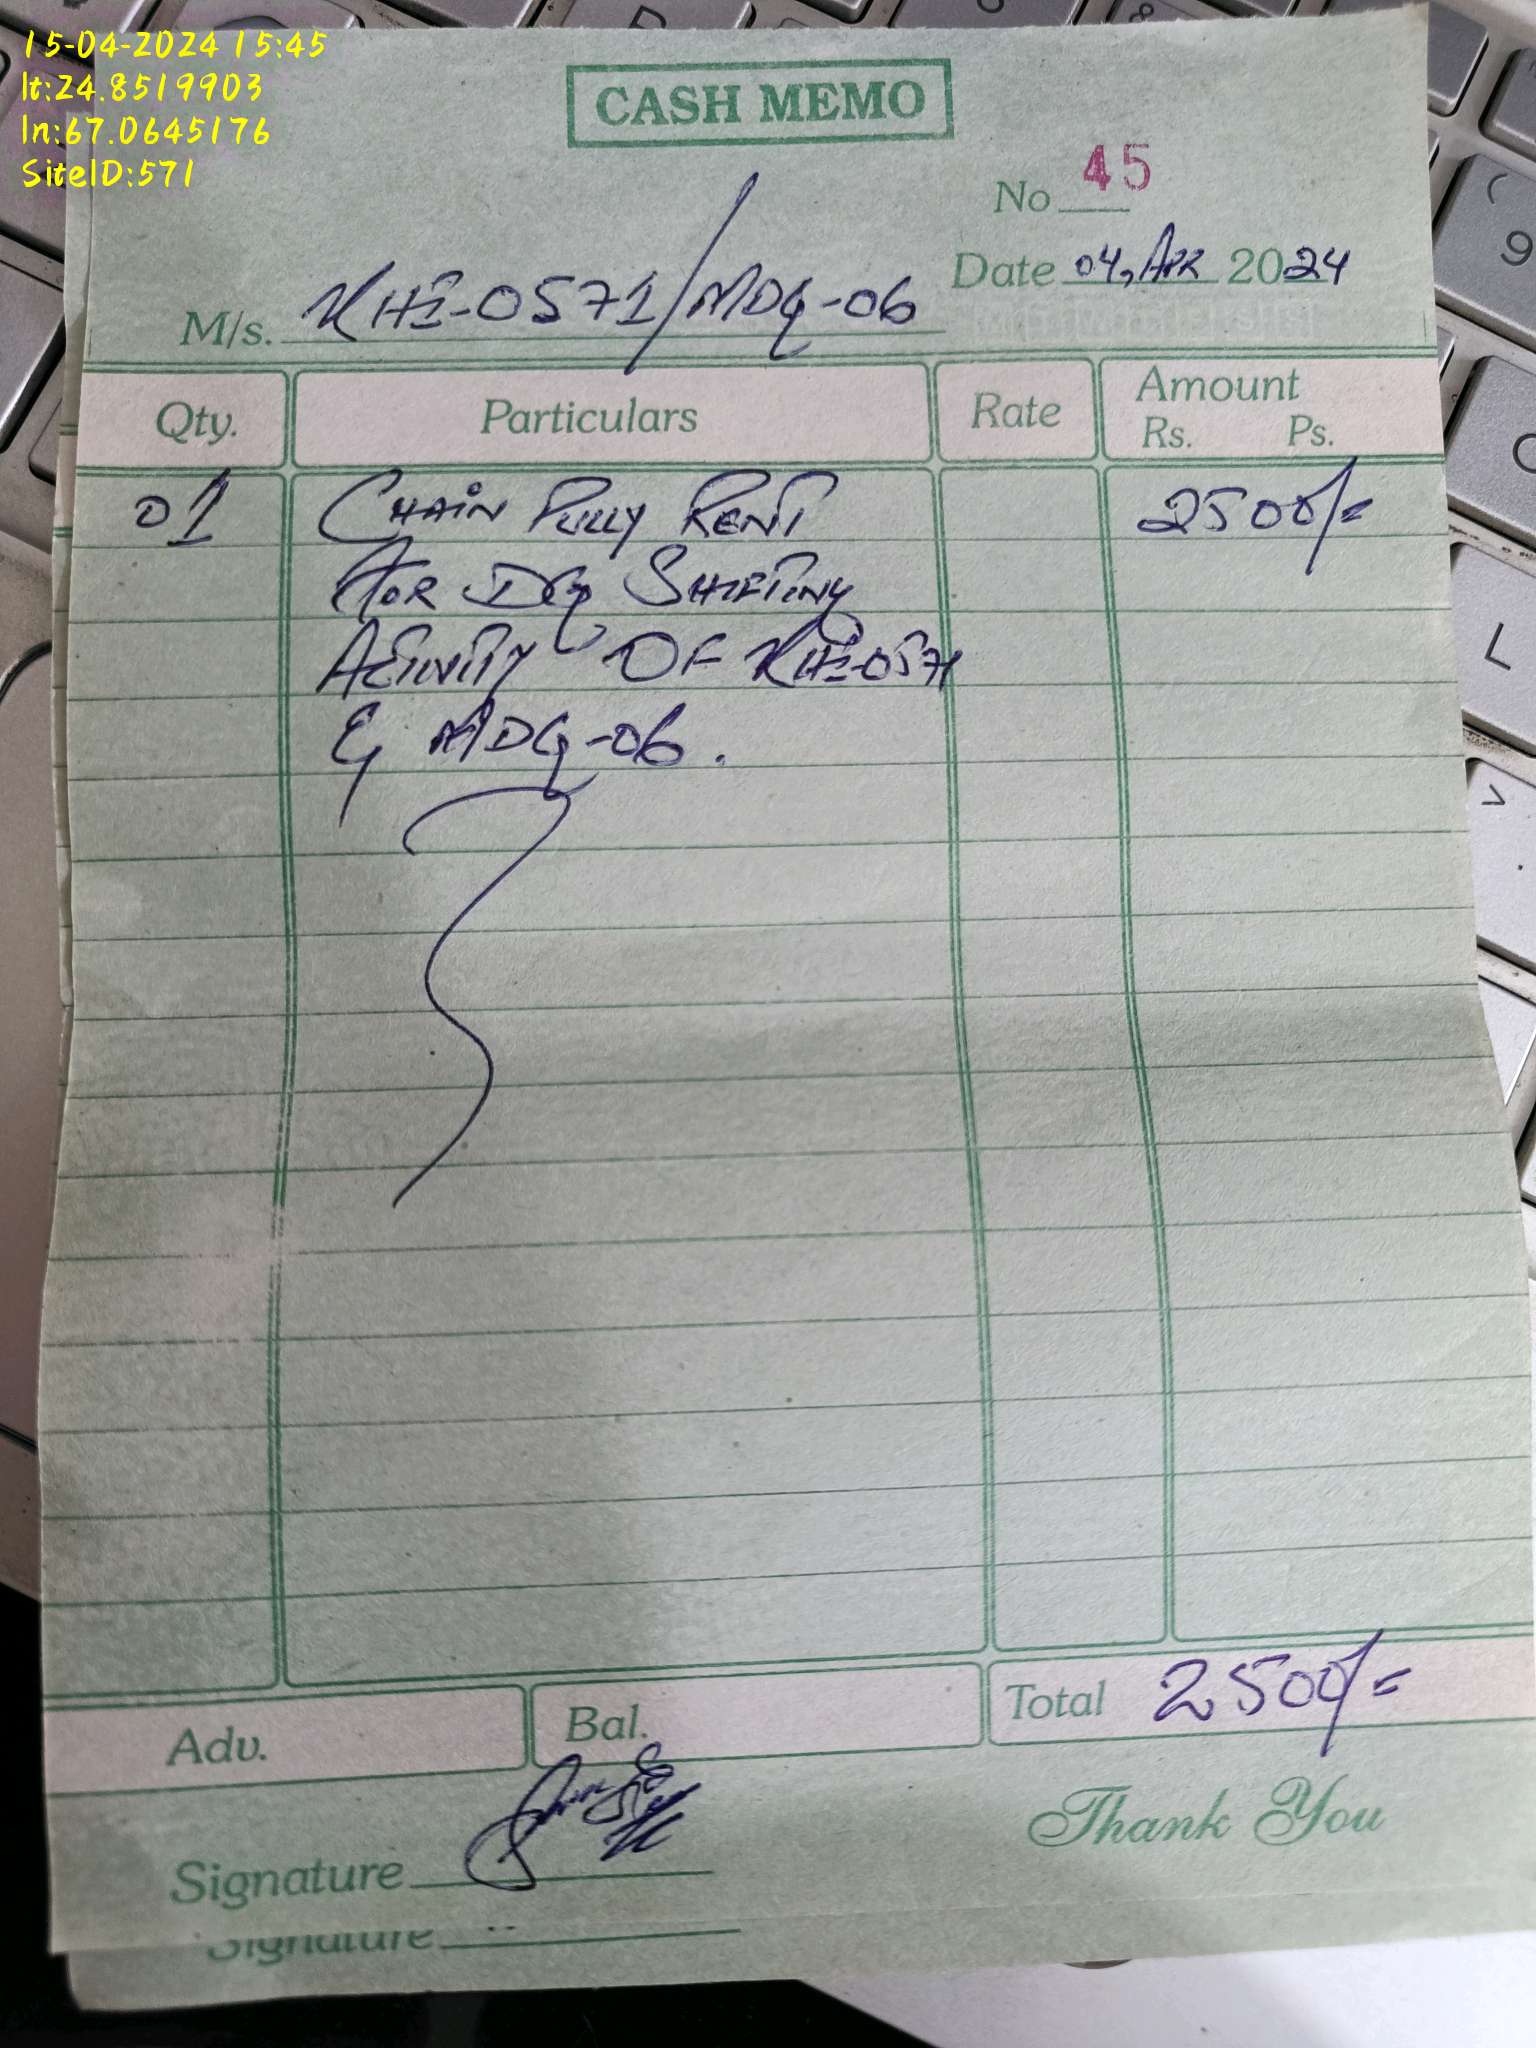 15-04-2024 15:45
lt:24.8519903
ln:67.0645176
SiteID:571
CASH MEMO
No 45
Date 04, APR 2024
M/s. KHI-0571/MDG-06
Qty. Particulars Rate Amount
Rs. Ps.
01 CHAIN PULLY RENT 2500/=
FOR DG SHIFTING
ACTIVITY OF KHI-0571
& MDG-06.
Adv. Bal. Total 2500/=
Thank You
Signature
Signature